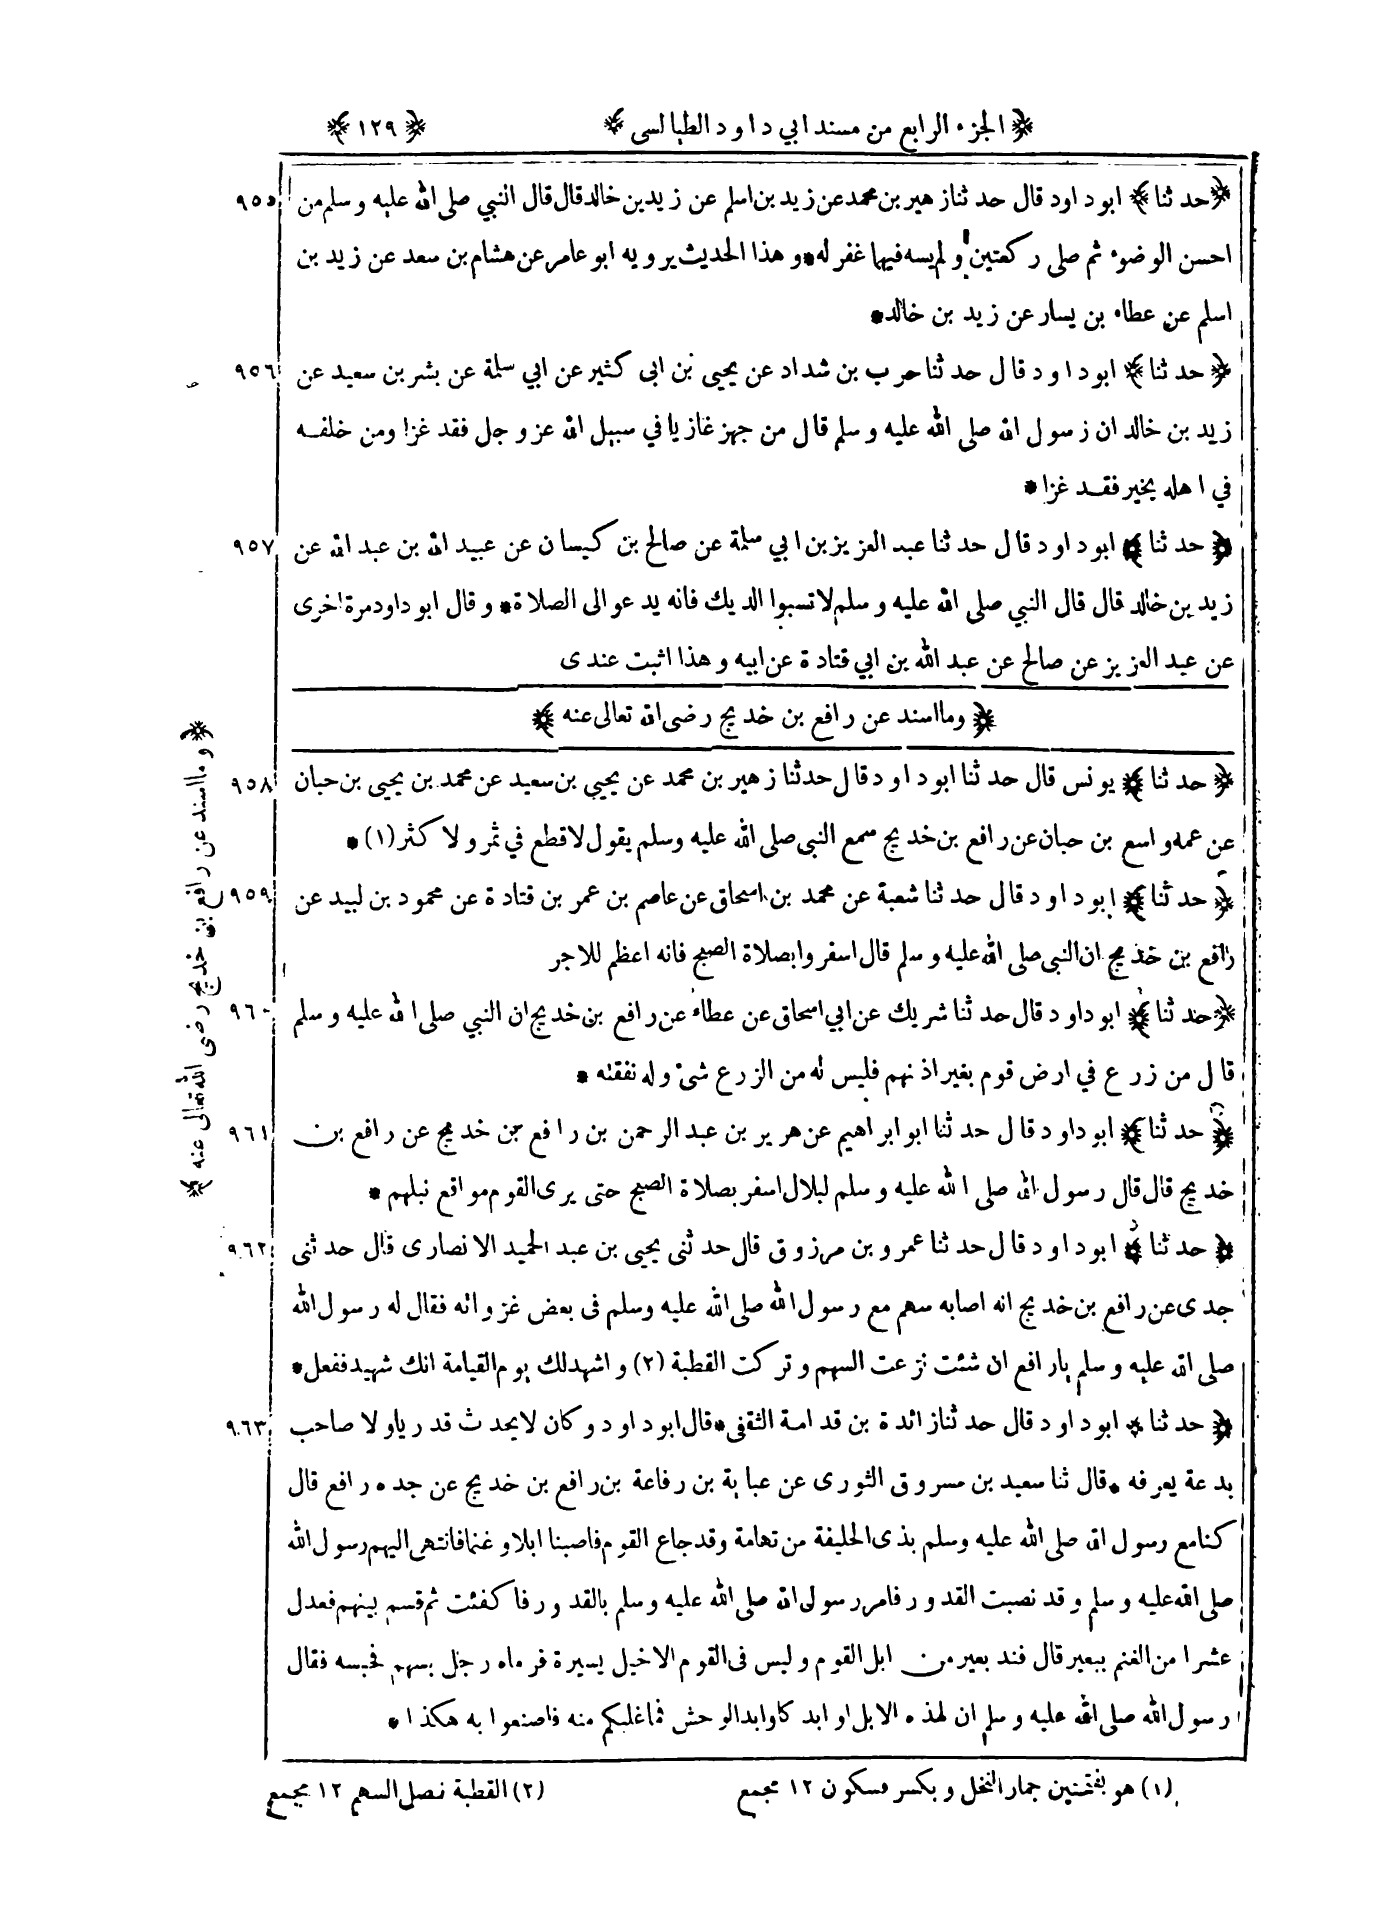 ﴿ الجزء الرابع من مسند ابي داود الطيالسى ﴾ ﴿ ١٢٩ ﴾
﴿ حدثنا ﴾ ابوداود قال حدثنا زهير بن محمد عن زيد بن اسلم عن زيد بن خالد قال قال النبي صلى الله عليه وسلم من ٩٥٥
احسن الوضوء ثم صلى ركعتين ولم يسه فيهما غفر له * وهذا الحديث يرويه ابو عامر عن هشام بن سعد عن زيد بن
اسلم عن عطاء بن يسار عن زيد بن خالد *
﴿ حدثنا ﴾ ابوداود قال حدثنا حرب بن شداد عن يحيى بن ابى كثير عن ابي سلمة عن بشر بن سعيد عن ٩٥٦
زيد بن خالد ان رسول الله صلى الله عليه وسلم قال من جهز غازيا في سبيل الله عز وجل فقد غزا ومن خلفه
في اهله بخير فقد غزا *
﴿ حدثنا ﴾ ابوداود قال حدثنا عبد العزيز بن ابي سلمة عن صالح بن كيسان عن عبيد الله بن عبد الله عن ٩٥٧
زيد بن خالد قال قال النبي صلى الله عليه وسلم لا تسبوا الديك فانه يدعو الى الصلاة * وقال ابوداود مرة اخرى
عن عبد العزيز عن صالح عن عبد الله بن ابي قتادة عن ابيه وهذا اثبت عندى
﴿ وما اسند عن رافع بن خديج رضى الله تعالى عنه ﴾
﴿ حدثنا ﴾ يونس قال حدثنا ابوداود قال حدثنا زهير بن محمد عن يحيى بن سعيد عن محمد بن يحيى بن حبان ٩٥٨
عن عمه واسع بن حبان عن رافع بن خديج سمع النبى صلى الله عليه وسلم يقول لا قطع في ثمر ولا كثر (١) *
﴿ حدثنا ﴾ ابوداود قال حدثنا شعبة عن محمد بن اسحاق عن عاصم بن عمر بن قتادة عن محمود بن لبيد عن ٩٥٩
رافع بن خديج ان النبى صلى الله عليه وسلم قال اسفروا بصلاة الصبح فانه اعظم للاجر
﴿ حدثنا ﴾ ابوداود قال حدثنا شريك عن ابي اسحاق عن عطاء عن رافع بن خديج ان النبي صلى الله عليه وسلم ٩٦٠
قال من زرع في ارض قوم بغير اذنهم فليس له من الزرع شئ وله نفقته *
﴿ حدثنا ﴾ ابوداود قال حدثنا ابو ابراهيم عن هرير بن عبد الرحمن بن رافع بن خديج عن رافع بن ٩٦١
خديج قال قال رسول الله صلى الله عليه وسلم لبلال اسفر بصلاة الصبح حتى يرى القوم مواقع نبلهم *
﴿ حدثنا ﴾ ابوداود قال حدثنا عمرو بن مرزوق قال حدثنى يحيى بن عبد الحميد الانصارى قال حدثنى ٩٦٢
جدى عن رافع بن خديج انه اصابه سهم مع رسول الله صلى الله عليه وسلم فى بعض غزواته فقال له رسول الله
صلى الله عليه وسلم يارافع ان شئت نزعت السهم وتركت القطبة (٢) واشهد لك يوم القيامة انك شهيد ففعل *
﴿ حدثنا ﴾ ابوداود قال حدثنا زائدة بن قدامة الثقفى * قال ابوداود وكان لا يحدث قدريا ولا صاحب ٩٦٣
بدعة يعرفه * قال ثنا سعيد بن مسروق الثورى عن عباية بن رفاعة بن رافع بن خديج عن جده رافع قال
كنا مع رسول الله صلى الله عليه وسلم بذى الحليفة من تهامة وقد جاع القوم فاصبنا ابلا وغنما فانتهى اليهم رسول الله
صلى الله عليه وسلم وقد نصبت القدور فامر رسول الله صلى الله عليه وسلم بالقدور فاكفئت ثم قسم بينهم فعدل
عشرا من الغنم ببعير قال فند بعير من ابل القوم وليس فى القوم الاخيل يسيرة فرماه رجل بسهم فحبسه فقال
رسول الله صلى الله عليه وسلم ان لهذه الابل اوابد كاوابد الوحش فما غلبكم منه فاصنعوا به هكذا *
(١) هو بفتحتين جمار النخل وبكسر فسكون ١٢ مجمع (٢) القطبة نصل السهم ١٢ مجمع
﴿ وما اسند عن رافع بن خديج رضى الله تعالى عنه ﴾